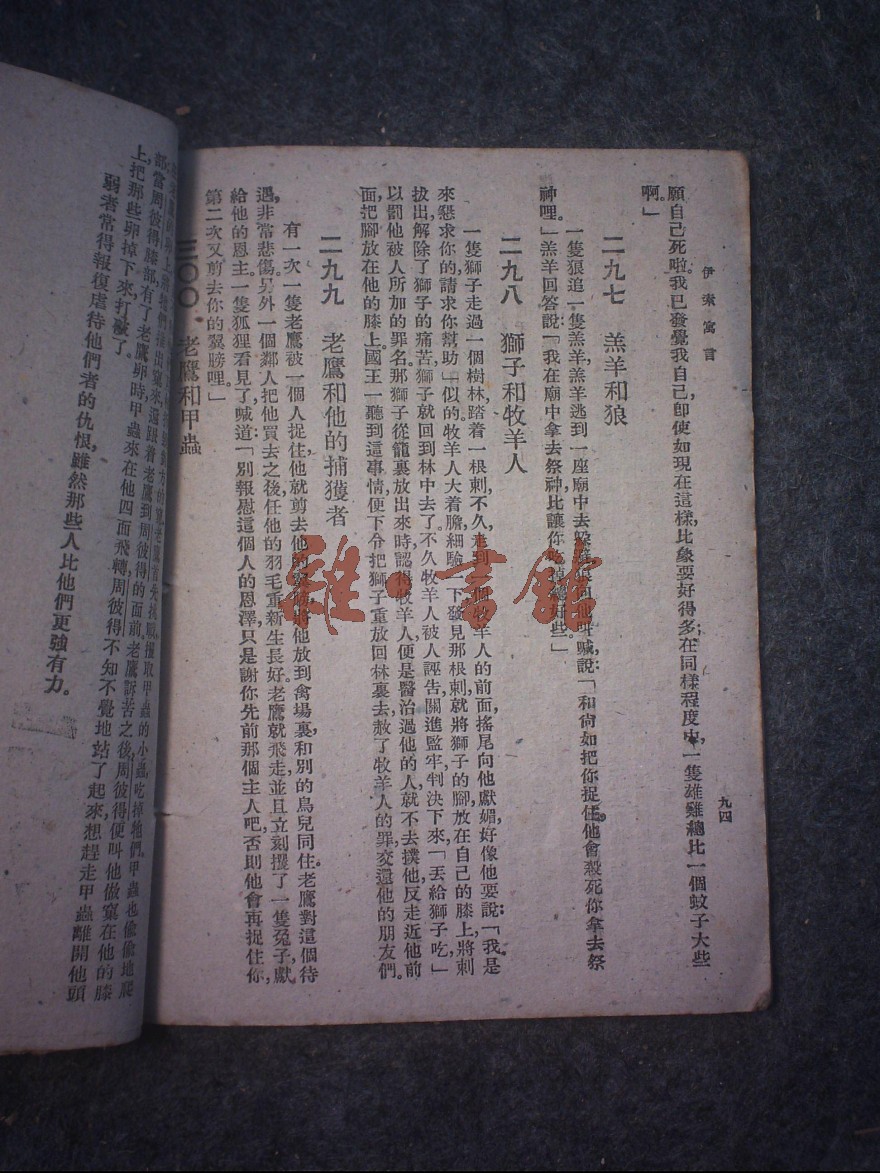 伊索寓言
九四
願自己死啦。我已發覺我自己，卽使如現在這樣，比象要好得多；在同樣程度中，一隻雄雞總比一個蚊子大些
啊。」
二九七　羔羊和狼
一隻狼追一隻羔羊，羔羊逃到一座廟中去躲避。狼向他叫喊說：「和尚如把你捉住，他會殺死你拿去祭
神哩。」羔羊回答說：「我在廟中拿去祭神，比讓你吃掉總好些。」
二九八　獅子和牧羊人
一隻獅子走過一個樹林，踏着一根刺，不久，走到一個牧羊人的前面，搖尾向他獻媚，好像他要說：「我是
來懇求你的，請求你幫助」似的。牧羊人大着膽細驗一下，發見那根刺，就將獅子的腳放在自己的膝上，將刺
拔出，解除了獅子的痛苦，獅子就回到林中去了。不久，牧羊人被人誣告，關進監牢，判決下來「丟給獅子吃」
以罰他被人所加的罪名。那獅子從籠裏放出來時，認得牧羊人便是醫治過他的人，就不去撲他，反走近他前
面，把腳放在他的膝上。國王一聽到這事情，便下令把獅子重放回林裏去，赦了牧羊人的罪，交還他的朋友們。
二九九　老鷹和他的捕獲者
有一次一隻老鷹被一個人捉住，他就剪去他的翼膀，將他放到禽場裏和別的鳥兒同住。老鷹對這個待
遇，非常悲傷。另外一個鄰人把他買去之後，任他的羽毛重新生長好。老鷹就飛走，並且立刻攫了一隻兔子，獻
給他的恩主。一隻狐狸看見了，喊道：「別報慰這個人的恩澤，只是謝你先前那個主人吧，否則他會再捉住你，
第二次又剪去你的翼膀哩。」
三〇〇　老鷹和甲蟲
甲蟲的小蟲，吃掉牠們。甲蟲也偷偷地爬
出窠來。遠跟着老鷹到周彼得的面前。老鷹訴苦之後，周彼得便叫他做窠在他的膝
部。當周彼得膝部有了老鷹卵時，甲蟲來在他四面飛轉，周彼得不知不覺地站了起來，想趕走甲蟲離開他頭
上，把那些卵掉下來打破了。
弱者常得報復虐待他們者的仇恨，雖然那些人比他們更強有力。
雜·書館